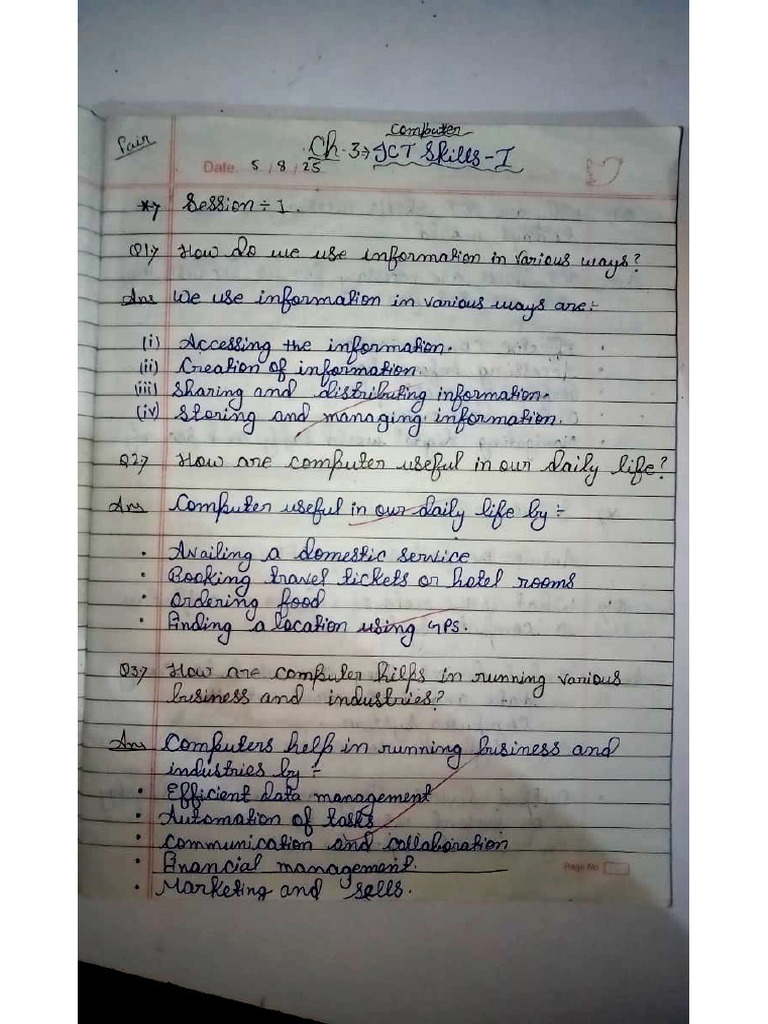 Computer
Pair
Ch-3→ ICT Skills-I
Date. 5/8/25
*→ Session ÷ 1.
Q1→ How do we use information in various ways?
Ans We use information in various ways are:-
(i) Accessing the information.
(ii) Creation of information
(iii) Sharing and distributing information.
(iv) Storing and managing information.
Q2→ How are computer useful in our daily life?
Ans Computer useful in our daily life by ÷
• Availing a domestic service
• Booking travel tickets or hotel rooms
• Ordering food
• Finding a location using GPS.
Q3→ How are computer hilps in running various
business and industries?
Ans Computers help in running business and
industries by ÷
• Efficient data management
• Automation of tasks
• Communication and collaboration
• Financial management.
• Marketing and sells.
Page No